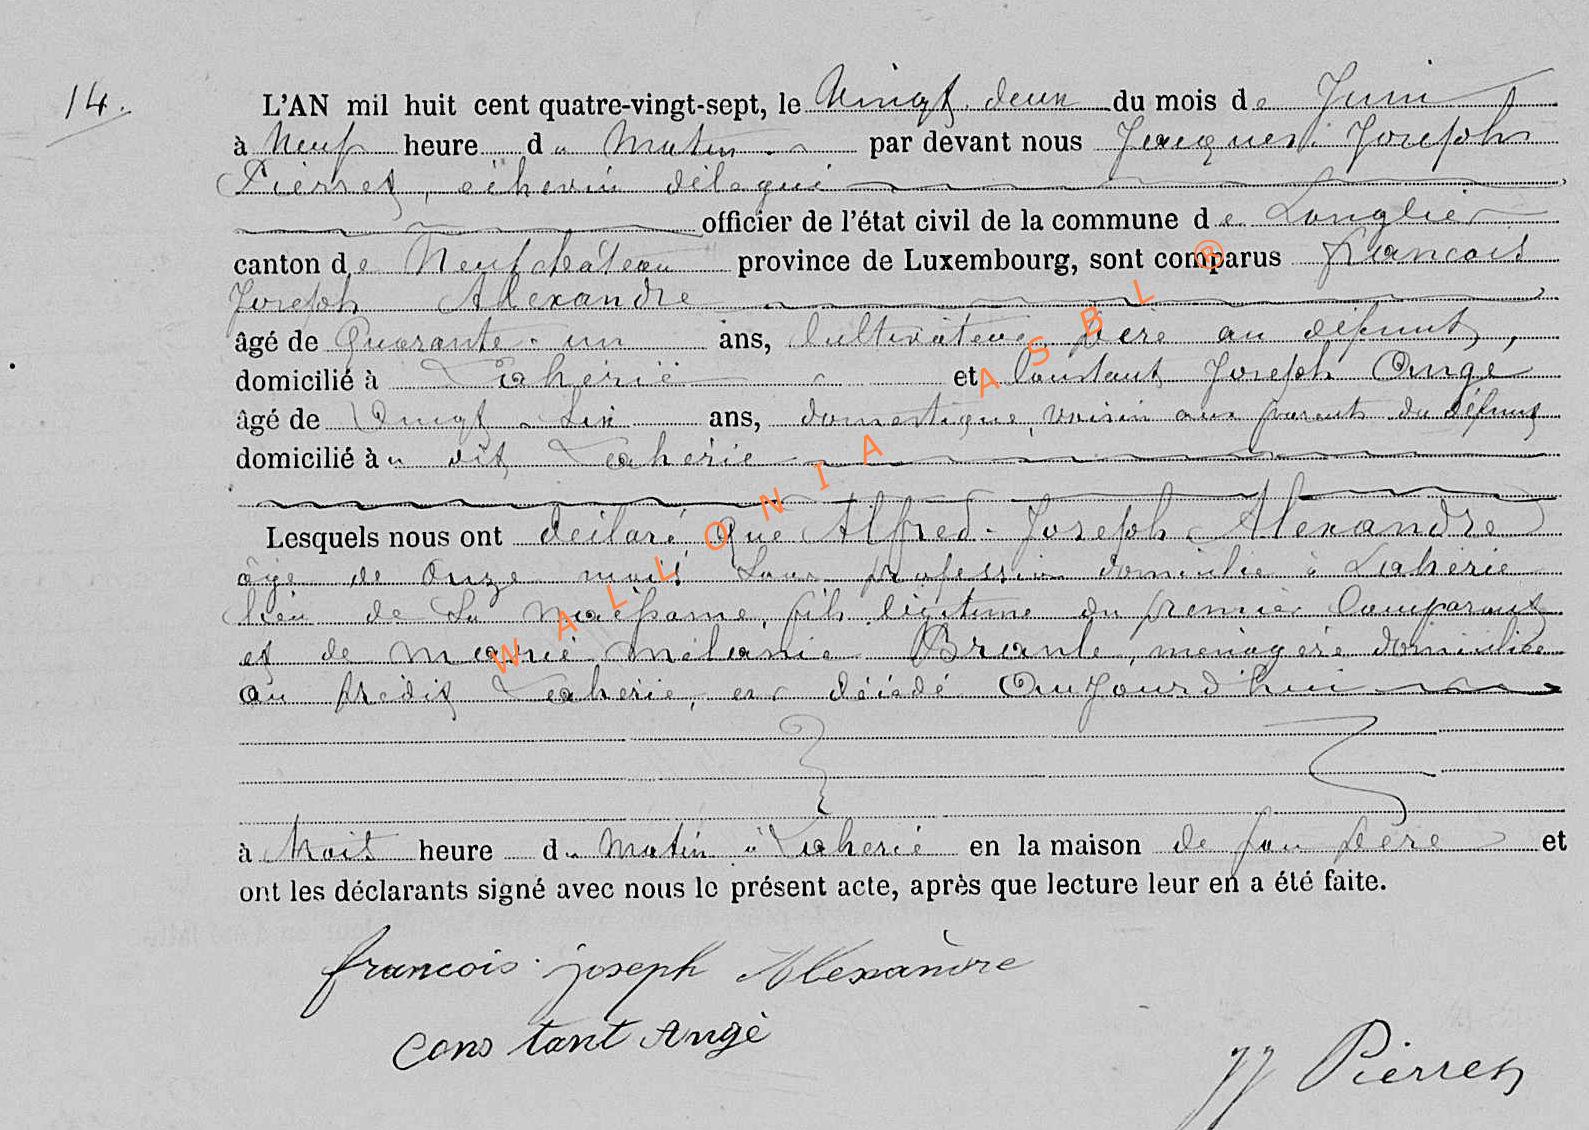 14.
L'AN mil huit cent quatre-vingt-sept, le Vingt deux du mois de Juin
à Neuf heure du Matin par devant nous Jacques Joseph
Pierret, échevin délégué
officier de l'état civil de la commune de Longlier
canton de Neufchâteau province de Luxembourg, sont comparus francois
Joseph Alexandre
âgé de Quarante-un ans, Cultivateur, père au défunt,
domicilié à Laherie et Constant Joseph Ange
âgé de Vingt-six ans, domestique, voisin aux parents du défunt
domicilié à u dit Laherie
Lesquels nous ont déclaré que Alfred-Joseph Alexandre
âgé de Onze mois sans profession domicilié à Laherie
lieu de sa naissance, fils légitime du premier Comparant
et de Marie Mélanie Braule, ménagère domiciliée
au predit Laherie, est décédé Aujourd'hui
à trois heure du Matin à Laherie en la maison de son père et
ont les déclarants signé avec nous le présent acte, après que lecture leur en a été faite.
francois joseph Alexandre
Constant Ange
JJ Pierret
WALLONIA ASBL ®